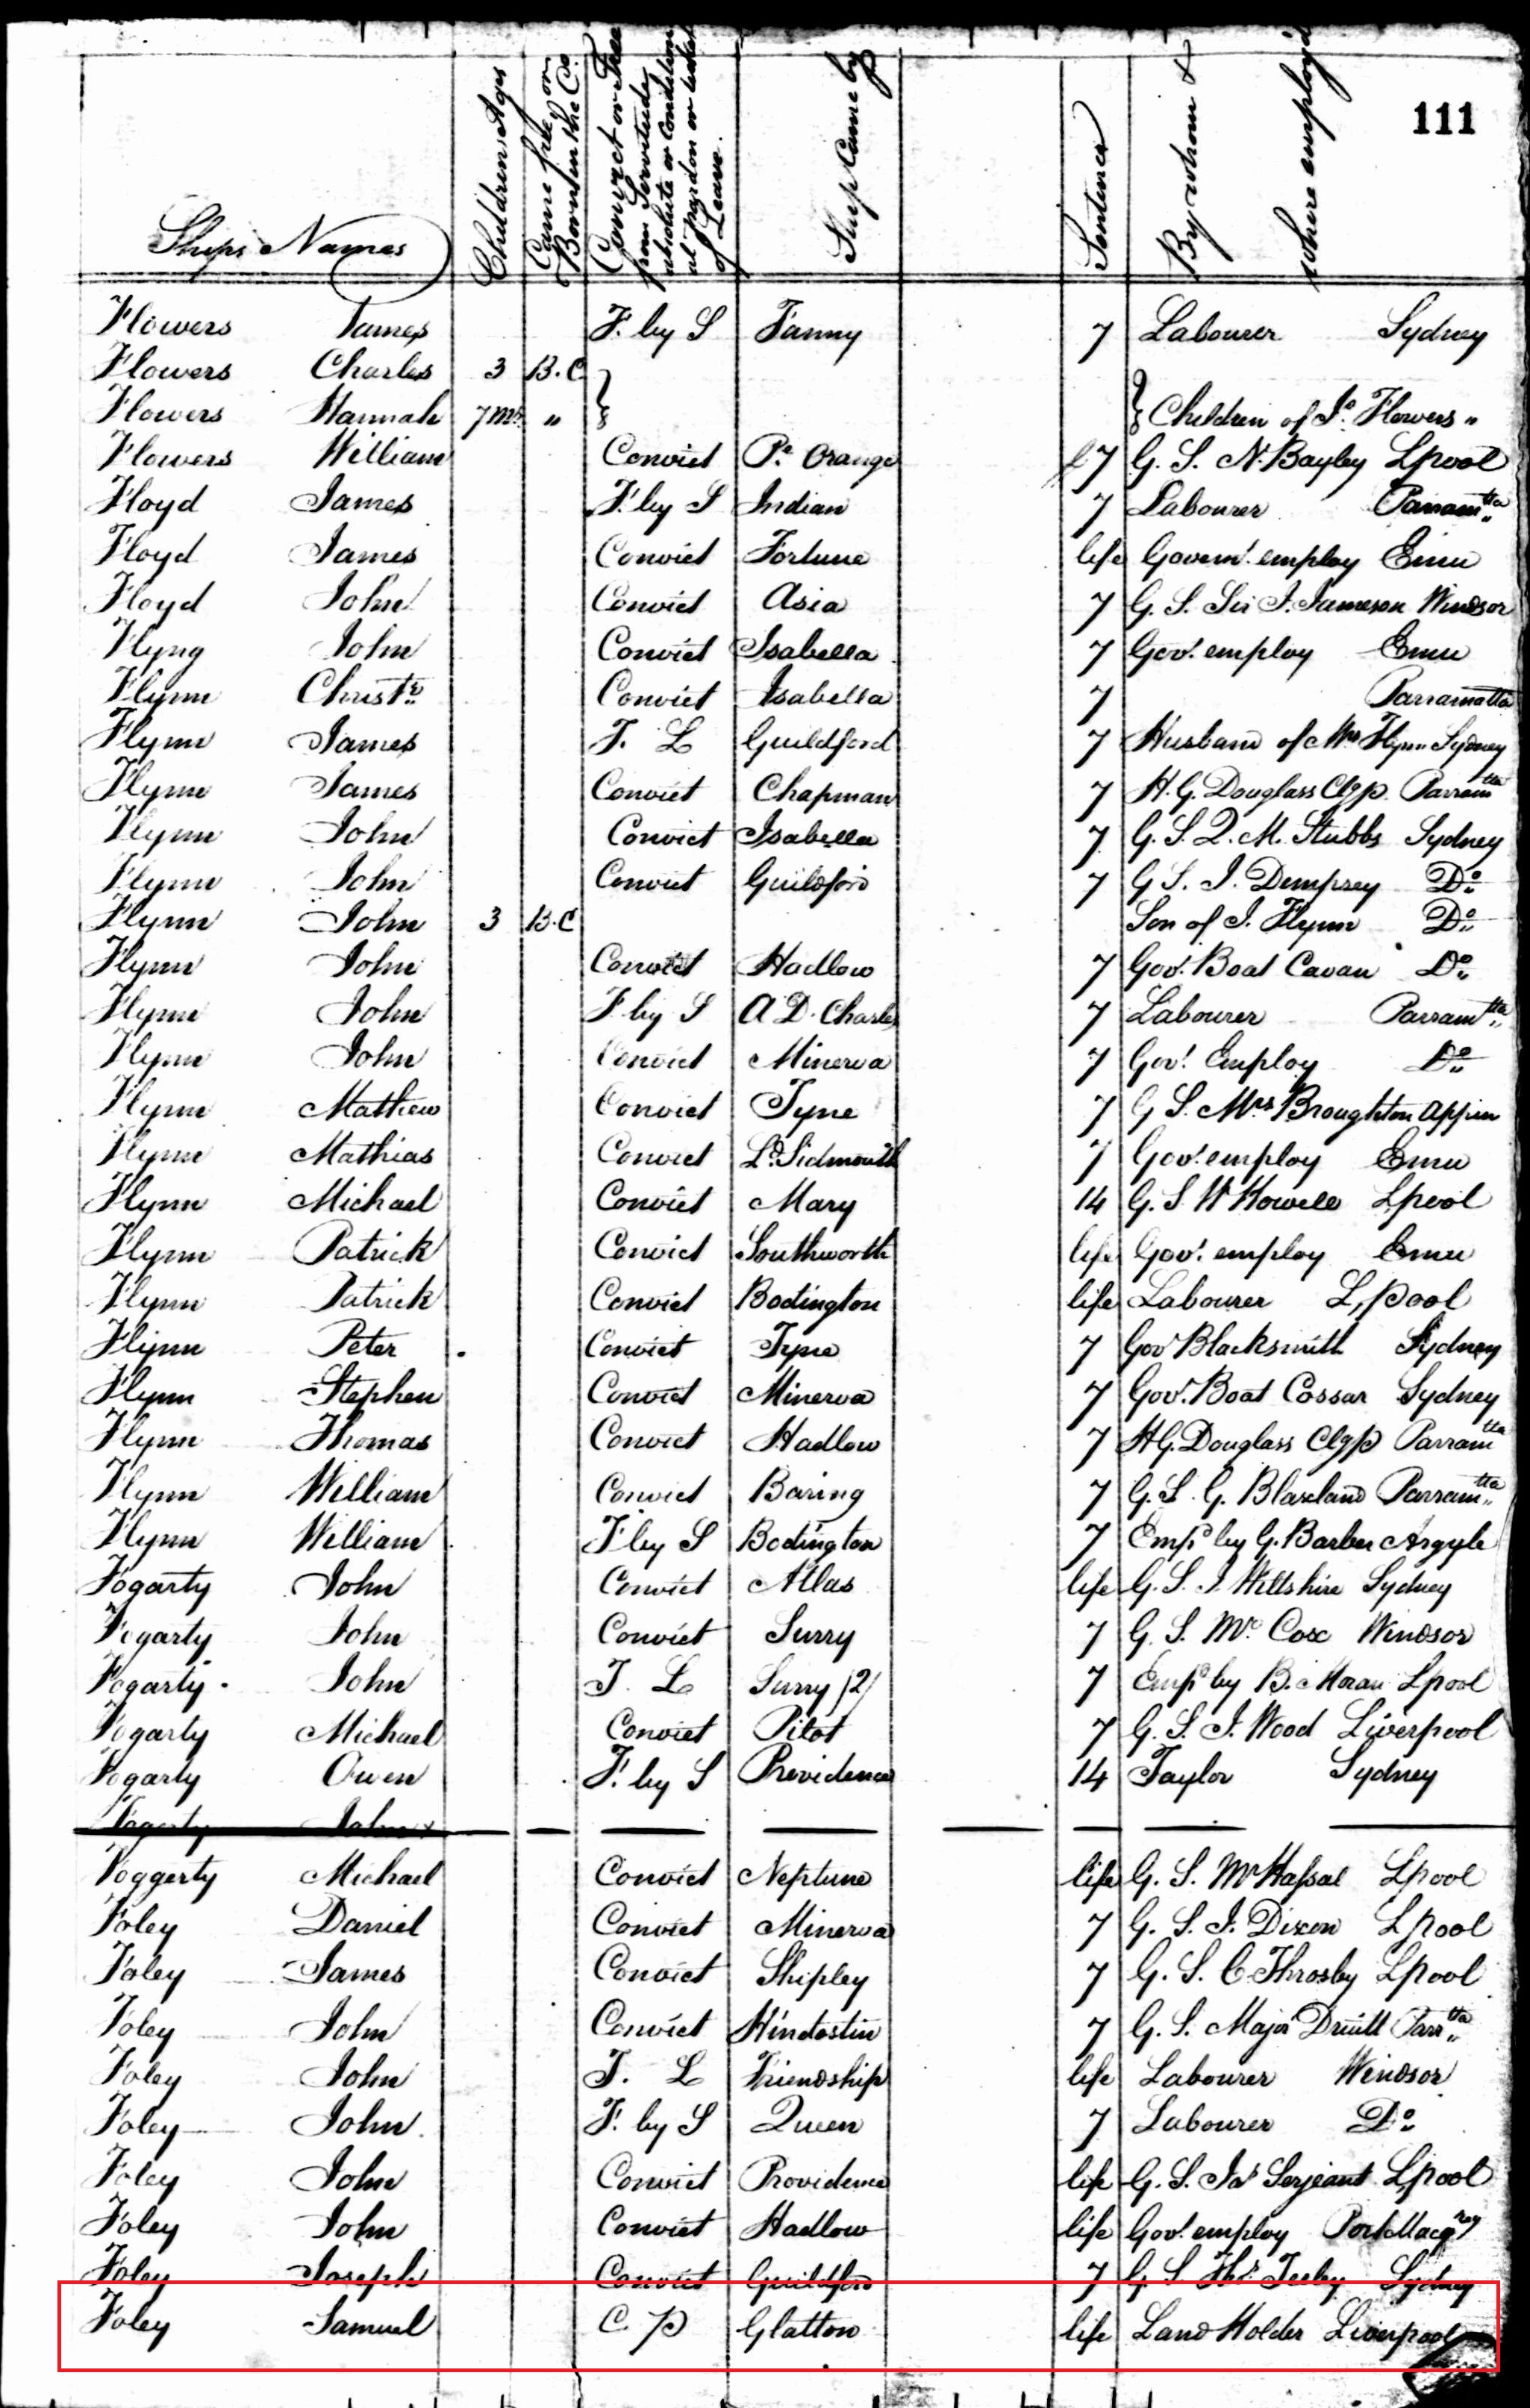 111
Ships Names Children Ages Came free or Born in the Co. Convict or Free from Servitude absolute or Conditional pardon or ticket of Leave. Ship Came by Sentence By whom & where employ'd
Flowers James F. by S Fanny 7 Labourer Sydney
Flowers Charles 3 B.C
Flowers Hannah 7 ms „ Children of Jo. Flowers „
Flowers William Convict Ps. Orange 7 G. S. N. Bayley Lpool
Floyd James F. by S Indian 7 Labourer Parramtta
Floyd James Convict Fortune life Governt. employ Emu
Floyd John Convict Asia 7 G. S. Sir J. Jameson Windsor
Flyng John Convict Isabella 7 Govt. employ Emu
Flynn Christr. Convict Isabella 7 Parramatta
Flynn James T. L Guildford 7 Husband of Mrs Flynn Sydney
Flynn James Convict Chapman 7 H. G. Douglass Clgp. Parramtta
Flynn John Convict Isabella 7 G. S. Q. M. Stubbs Sydney
Flynn John Convict Guildford 7 G S. J. Dempsey Do
Flynn John 3 B.C Son of J. Flynn Do
Flynn John Convict Hadlow 7 Govt. Boat Cavan Do
Flynn John F by S A D. Charles 7 Labourer Parramtta
Flynn John Convict Minerva 7 Govt. Employ Do
Flynn Mathew Convict Tyne 7 G S. Mrs Broughton Appin
Flynn Mathias Convict Ld. Sidmouth 7 Govt. employ Emu
Flynn Michael Convict Mary 14 G. S W Howell Lpool
Flynn Patrick Convict Southworth life Govt. employ Emu
Flynn Patrick Convict Bodington life Labourer L,pool
Flynn Peter Convict Tyne 7 Gov Blacksmith Sydney
Flynn Stephen Convict Minerva 7 Govt. Boat Cossar Sydney
Flynn Thomas Convict Hadlow 7 H G. Douglass Clgp Parramtta
Flynn William Convict Baring 7 G. S. G. Blaxland Parramtta
Flynn William F by S Bodington 7 Empd by G. Barber Argyle
Fogarty John Convict Atlas life G. S. J. Wiltshire Sydney
Fogarty John Convict Surry 7 G. S. Mr. Cox Windsor
Fogarty John T. L Surry /2/ 7 Empd by B. Moran Lpool
Fogarty Michael Convict Pilot 7 G. S. J. Wood Liverpool
Fogarty Owen F. by S Providence 14 Taylor Sydney
Fogarty
Foggerty Michael Convict Neptune life G. S. Mr Hassal Lpool
Foley Daniel Convict Minerva 7 G. S. J. Dixon Lpool
Foley James Convict Shipley 7 G. S. C. Throsby Lpool
Foley John Convict Hindostin 7 G. S. Major Druitt Parrtta
Foley John T. L Friendship life Labourer Windsor
Foley John F. by S Queen 7 Labourer Do
Foley John Convict Providence life G. S. Jas Serjeant Lpool
Foley John Convict Hadlow life Govt. employ Port Macqrey
Foley Joseph Convict Guildford 7 G S Thos Sydney
Foley Samuel C. P Glatton life Land Holder Liverpool